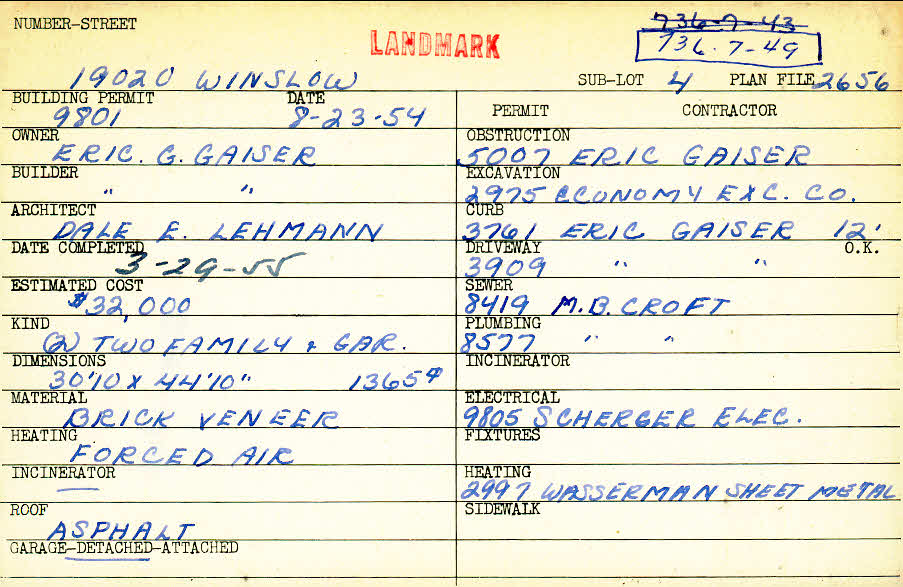 NUMBER-STREET
LANDMARK
736-7-43
736-7-49
19020 WINSLOW
SUB-LOT 4 PLAN FILE 2656
BUILDING PERMIT DATE
9801 8-23-54
PERMIT CONTRACTOR
OWNER
ERIC. G. GAISER
OBSTRUCTION
5007 ERIC GAISER
BUILDER
" "
EXCAVATION
2975 ECONOMY EXC. CO.
ARCHITECT
DALE E. LEHMANN
CURB
3761 ERIC GAISER 12'
DATE COMPLETED
3-29-55
DRIVEWAY O.K.
3909 " "
ESTIMATED COST
$32,000
SEWER
8419 M.B. CROFT
KIND
(2) TWO FAMILY & GAR.
PLUMBING
8577 " "
DIMENSIONS
30'10 X 44'10" 1365
INCINERATOR
MATERIAL
BRICK VENEER
ELECTRICAL
9805 SCHERGER ELEC.
HEATING
FORCED AIR
FIXTURES
INCINERATOR
—
HEATING
2997 WASSERMAN SHEET METAL
ROOF
ASPHALT
SIDEWALK
GARAGE-DETACHED-ATTACHED